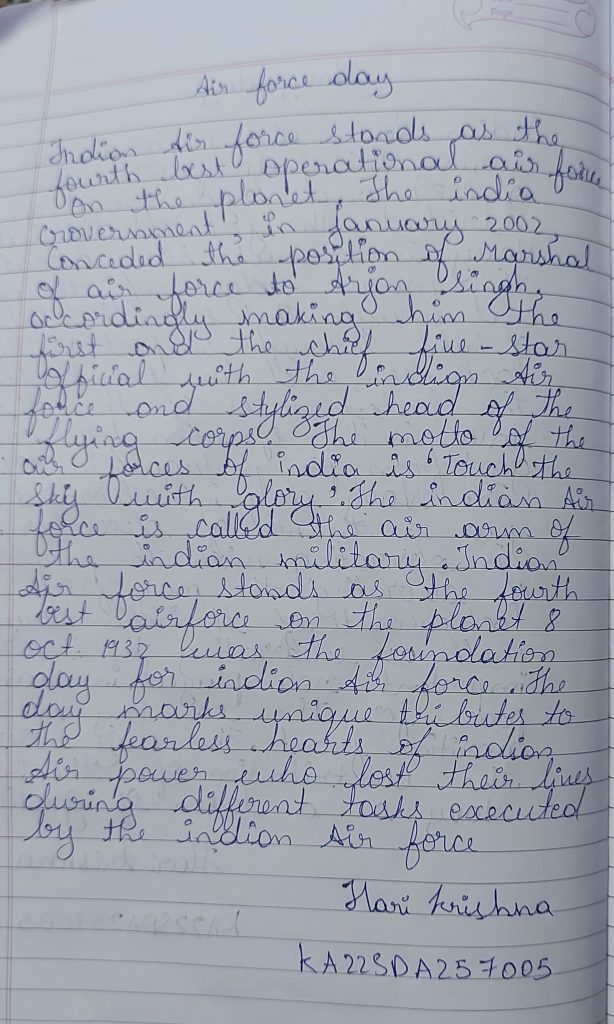 Page
Air force day
Indian Air force stands as the
fourth best operational air force
on the planet. The india
Government, in january 2002,
Conceded the position of Marshal
of air force to Arjan Singh,
accordingly making him the
first and the chief five - star
official with the indian Air
force and stylized head of the
flying corps. The motto of the
air forces of india is 'Touch the
sky with glory'. The indian Air
force is called the air arm of
the indian military. Indian
Air force stands as the fourth
best airforce on the planet 8
oct. 1932 was the foundation
day for indian Air force. The
day marks unique tributes to
the fearless hearts of indian
Air power who lost their lives
during different tasks executed
by the indian Air force
Hari krishna
KA22SDA257005